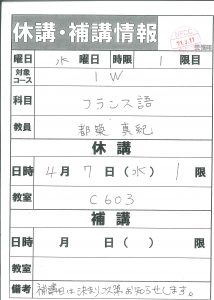 休講・補講情報
曜日 水 曜日 時限 1 限目
対象コース 1W
科目 フランス語
教員 都築 真紀
休講
日時 4 月 7 日 (水) 1 限
教室 C603
補講
日時 月 日 ( ) 限
教室
備考 補講日は決まり次第お知らせします。